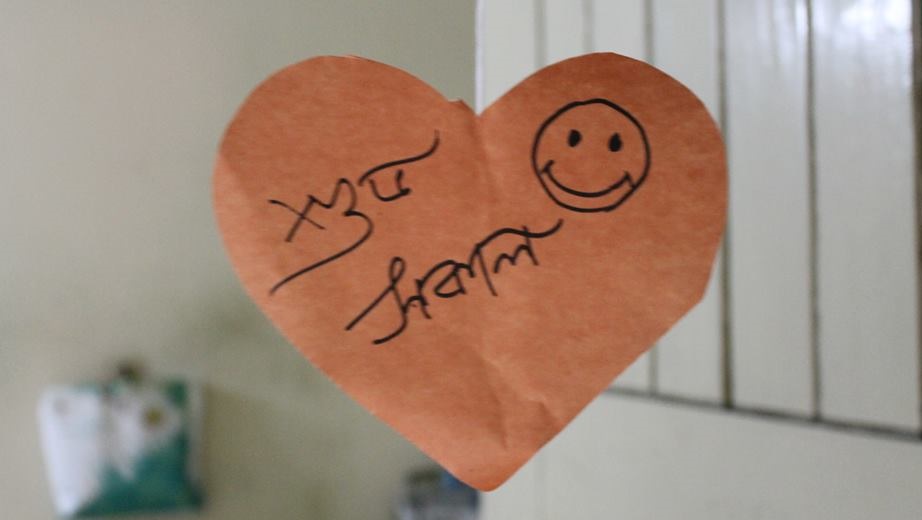 শুভ
সকাল